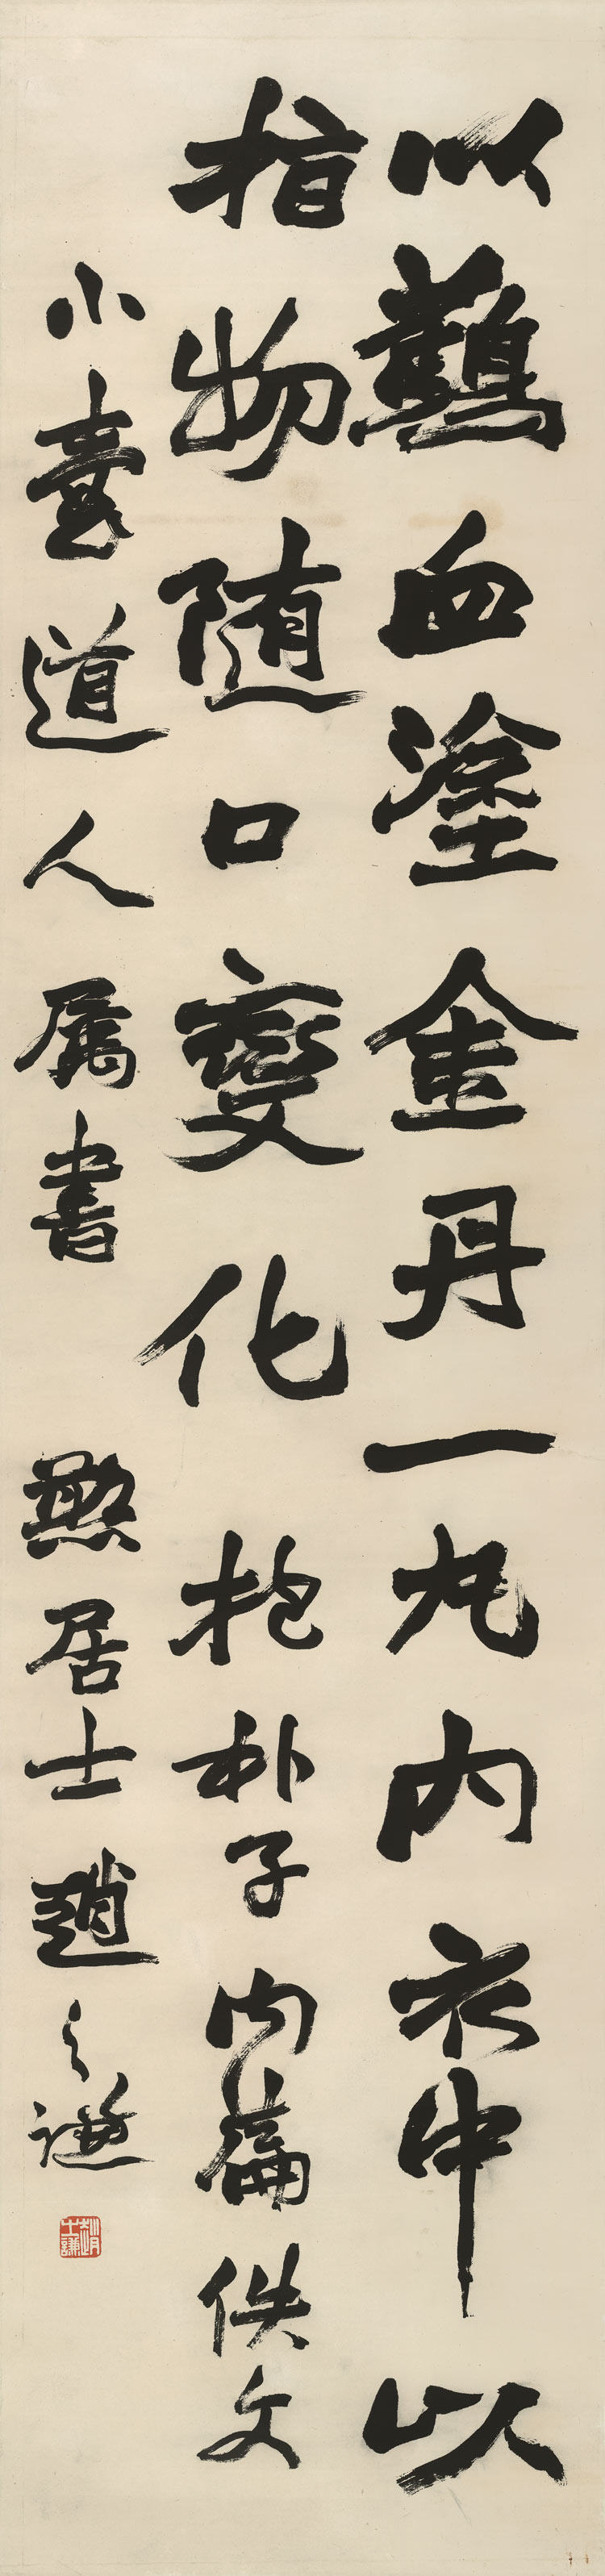 以血塗金丹一丸內衣中以
指物随口變化 抱朴子內篇佚文
小道人属書 憨居士趙之謙
趙之謙